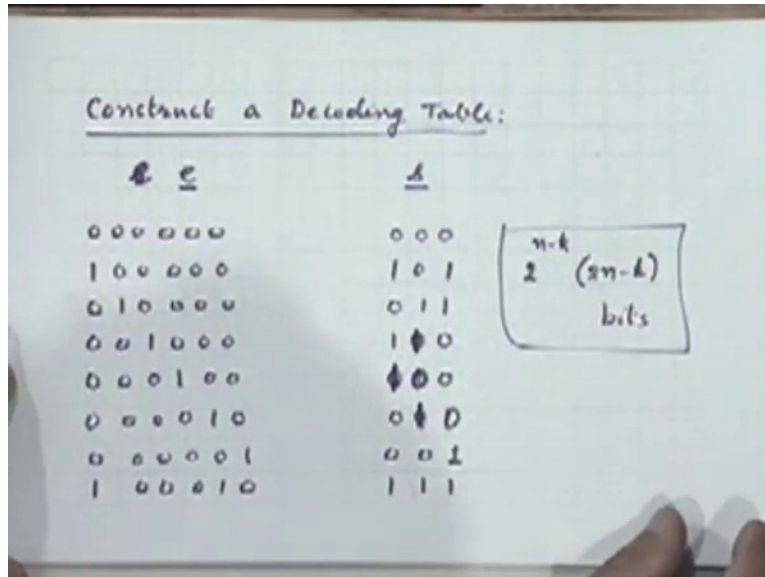 Construct a Decoding Table:
e s
000000 000
100000 101
010000 011
001000 110
000100 100
000010 010
000001 001
100010 111
2^{n-k} (2n-k)
bits